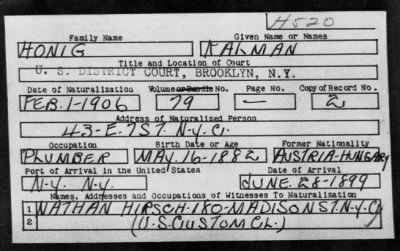 H520
Family Name Given Name or Names
HONIG KALMAN
Title and Location of Court
U. S. DISTRICT COURT, BROOKLYN, N.Y.
Date of Naturalization Volume or Bundle No. Page No. Copy of Record No.
FEB. 1-1906 79 — 2
Address of Naturalized Person
43-E. 7 ST. N.Y. C.
Occupation Birth Date or Age Former Nationality
PLUMBER MAY. 16-1882 AUSTRIA-HUNGARY
Port of Arrival in the United States Date of Arrival
N.Y. N.Y. JUNE. 28-1899
Names, Addresses and Occupations of Witnesses To Naturalization
1 NATHAN HIRSCH-180-MADISON ST. N.Y. C.
2 (U.S. CUSTOM CL.)